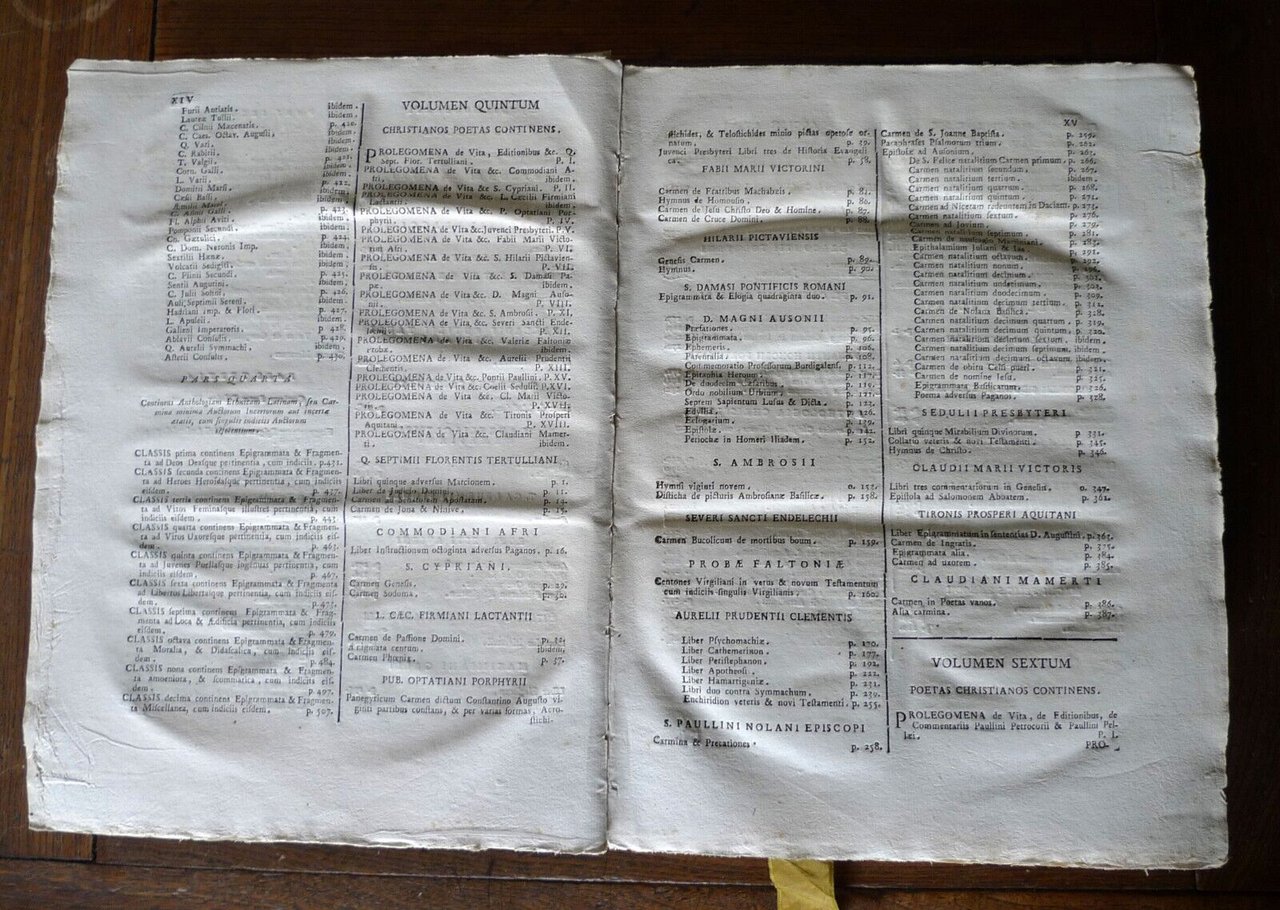 XIV
Furii Antiatis. ibidem.
Laureæ Tullii. ibidem.
C. Cilnii Mæcenatis. p. 420.
C. Cæs. Octav. Augusti. ibidem.
Q. Vari. ibidem.
C. Rabirii. p. 421.
T. Valgii. ibidem.
Corn. Galli. ibidem.
L. Varii. p. 422.
Domitii Marsi. ibidem.
Cæsii Bassi. ibidem.
ibidem.
p. 423.
Fl. Alphii Aviti. ibidem.
Pomponii Secundi. ibidem.
Cn. Gætulici. p. 424.
C. Dom. Neronis Imp. ibidem.
Sextilii Hænæ. ibidem.
Volcatii Sedigiti. ibidem.
C. Plinii Secundi. p. 425.
Sentii Augurini. ibidem.
C. Julii Solini. p. 426.
Auli Septimii Sereni. ibidem.
Hadriani Imp. & Flori. p. 427.
L. Apuleii. ibidem.
Gallieni Imperatoris. p. 428.
Ablavii Consulis. p. 429.
Q. Aurelii Symmachi. ibidem.
Asterii Consulis. p. 430.
PARS QUARTA
Continens Anthologiam Eroticam Latinam, seu Carmina
minima Auctorum Incertorum aut incertæ
ætatis, cum singulis indiciis Auctorum
CLASSIS prima continens Epigrammata & Fragmenta
ad Deos Deasque pertinentia, cum indiciis. p. 431.
CLASSIS secunda continens Epigrammata & Fragmenta
ad Heroes Heroidasque pertinentia, cum indiciis
eisdem. p. 437.
CLASSIS tertia continens Epigrammata & Fragmenta
ad Viros Feminasque illustres pertinentia, cum
indiciis eisdem. p. 445.
CLASSIS quarta continens Epigrammata & Fragmenta
ad Viros Uxoresque pertinentia, cum indiciis eisdem.
p. 463.
CLASSIS quinta continens Epigrammata & Fragmenta
ad Juvenes Puellasque pertinentia, cum
indiciis eisdem. p. 467.
CLASSIS sexta continens Epigrammata & Fragmenta
ad Libertos Libertasque pertinentia, cum indiciis eisdem.
p. 475.
CLASSIS septima continens Epigrammata & Fragmenta
ad Loca & Ædificia pertinentia, cum indiciis
eisdem. p. 479.
CLASSIS octava continens Epigrammata & Fragmenta
Moralia, & Didascalica, cum indiciis eisdem.
p. 484.
CLASSIS nona continens Epigrammata & Fragmenta
amœniora, & scommatica, cum indiciis eisdem.
p. 497.
CLASSIS decima continens Epigrammata & Fragmenta
Miscellanea, cum indiciis eisdem. p. 507.
VOLUMEN QUINTUM
CHRISTIANOS POETAS CONTINENS.
PROLEGOMENA de Vita, Editionibus &c. Q.
Sept. Flor. Tertulliani. P. I.
PROLEGOMENA de Vita &c. Commodiani A-
fri. ibidem.
PROLEGOMENA de Vita & S. Cypriani. P. II.
PROLEGOMENA de Vita &c. L. Cæcilii Firmiani
Lactantii. ibidem.
PROLEGOMENA de Vita &c. P. Optatiani Por-
phyrii. P. IV.
PROLEGOMENA de Vita &c. Juvenci Presbyteri. P. V.
PROLEGOMENA de Vita &c. Fabii Marii Victo-
rini Afri. P. VI.
PROLEGOMENA de Vita &c. S. Hilarii Pictavien-
sis. P. VII.
PROLEGOMENA de Vita &c. S. Damasi Pa-
pæ. ibidem.
PROLEGOMENA de Vita &c. D. Magni Auso-
nii. P. VIII.
PROLEGOMENA de Vita &c. S. Ambrosii. P. XI.
PROLEGOMENA de Vita, &c. Severi Sancti Ende-
lechii. P. XII.
PROLEGOMENA de Vita &c. Valeriæ Faltoniæ
Probæ. ibidem.
PROLEGOMENA de Vita &c. Aurelii Prudentii
Clementis. P. XIII.
PROLEGOMENA de Vita &c. Pontii Paullini. P. XV.
PROLEGOMENA de Vita &c. Cœlii Sedulii. P. XVI.
PROLEGOMENA de Vita &c. Cl. Marii Victo-
ris. P. XVII.
PROLEGOMENA de Vita &c. Tironis Prosperi
Aquitani. P. XVIII.
PROLEGOMENA de Vita &c. Claudiani Mamer-
ti. ibidem.
Q. SEPTIMII FLORENTIS TERTULLIANI
Libri quinque adversus Marcionem. p. 1.
Liber de Judicio Domini. p. 11.
Carmen ad Senatorem Apostatam. p. 14.
Carmen de Jona & Ninive. p. 15.
COMMODIANI AFRI
Liber Instructionum octoginta adversus Paganos. p. 16.
S. CYPRIANI.
Carmen Genesis. p. 29.
Carmen Sodoma. p. 30.
L. CÆC. FIRMIANI LACTANTII
Carmen de Passione Domini. p. 32.
Ænigmata centum. ibidem.
Carmen Phœnix. p. 37.
PUB. OPTATIANI PORPHYRII
Panegyricum Carmen dictum Constantino Augusto vi-
ginti partibus constans, & per varias formas, Acro-
stichi-
XV
stichides, & Telostichides minio pictas operose or-
natum. p. 39.
Juvenci Presbyteri Libri tres de Historia Evangeli-
ca. p. 58.
FABII MARII VICTORINI
Carmen de Fratribus Machabæis. p. 81.
Hymnus de Homousio. p. 86.
Carmen de Jesu Christo Deo & Homine. p. 87.
Carmen de Cruce Domini. p. 88.
HILARII PICTAVIENSIS
Genesis Carmen. p. 89.
Hymnus. p. 90.
S. DAMASI PONTIFICIS ROMANI
Epigrammata & Elogia quadraginta duo. p. 91.
D. MAGNI AUSONII
Præfationes. p. 95.
Epigrammata. p. 96.
Ephemeris. p. 106.
Parentalia. p. 108.
Commemoratio Professorum Burdigalens. p. 112.
Epitaphia Heroum. p. 117.
De duodecim Cæsaribus. p. 119.
Ordo nobilium Urbium. p. 121.
Septem Sapientum Lusus & Dicta. p. 122.
Edyllia. p. 126.
Eclogarium. p. 139.
Epistolæ. p. 142.
Periochæ in Homeri Iliadem. p. 152.
S. AMBROSII
Hymni vigiuti novem. p. 153.
Disticha de picturis Ambrosianæ Basilicæ. p. 158.
SEVERI SANCTI ENDELECHII
Carmen Bucolicum de mortibus boum. p. 159.
PROBÆ FALTONIÆ
Centones Virgiliani in vetus & novum Testamentum
cum indiciis singulis Virgilianis. p. 160.
AURELII PRUDENTII CLEMENTIS
Liber Psychomachiæ. p. 170.
Liber Cathemerinon. p. 177.
Liber Peristephanon. p. 192.
Liber Apotheosi. p. 222.
Liber Hamartigeniæ. p. 231.
Libri duo contra Symmachum. p. 239.
Enchiridion veteris & novi Testamenti. p. 255.
S. PAULLINI NOLANI EPISCOPI
Carmina & Precationes. p. 258.
Carmen de S. Joanne Baptista. p. 259.
Paraphrases Psalmorum trium. p. 262.
Epistolæ ad Ausonium. p. 263.
De S. Felice natalitium Carmen primum. p. 266.
Carmen natalitium secundum. p. 267.
Carmen natalitium tertium. ibidem.
Carmen natalitium quartum. p. 268.
Carmen natalitium quintum. p. 271.
Carmen ad Nicetam redeuntem in Daciam. p. 275.
Carmen natalitium sextum. p. 276.
Carmen ad Jovium. p. 279.
Carmen natalitium septimum. p. 281.
Carmen de naufragio Martiniani. p. 285.
Epithalamium Juliani & Iæ. p. 291.
Carmen natalitium octavum. p. 292.
Carmen natalitium nonum. p. 296.
Carmen natalitium decimum. p. 302.
Carmen natalitium undecimum. p. 303.
Carmen natalitium duodecimum. p. 309.
Carmen natalitium decimum tertium. p. 312.
Carmen de Nolana Basilica. p. 318.
Carmen natalitium decimum quartum. p. 319.
Carmen natalitium decimum quintum. p. 320.
Carmen natalitium decimum sextum. ibidem.
Carmen natalitium decimum septimum. ibidem.
Carmen natalitium decimum octavum. ibidem.
Carmen de obitu Celsi pueri. p. 321.
Carmen de nomine Jesu. p. 325.
Epigrammata Basilicarum. p. 326.
Poema adversus Paganos. p. 328.
SEDULII PRESBYTERI
Libri quinque Mirabilium Divinorum. p. 331.
Collatio veteris & novi Testamenti. p. 345.
Hymnus de Christo. p. 346.
CLAUDII MARII VICTORIS
Libri tres commentariorum in Genesin. p. 347.
Epistola ad Salomonem Abbatem. p. 361.
TIRONIS PROSPERI AQUITANI
Liber Epigrammatum in sententias D. Augustini. p. 363.
Carmen de Ingratis. p. 375.
Epigrammata alia. p. 384.
Carmen ad uxorem. p. 385.
CLAUDIANI MAMERTI
Carmen in Poetas vanos. p. 386.
Alia carmina. p. 387.
VOLUMEN SEXTUM
POETAS CHRISTIANOS CONTINENS.
PROLEGOMENA de Vita, de Editionibus, de
Commentariis Paullini Petrocurii & Paullini Pel-
læi. P. I.
PRO-